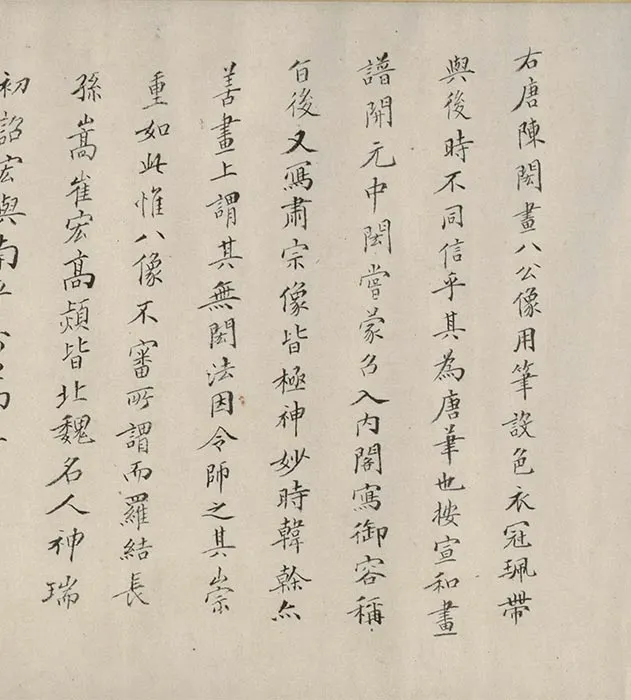 右唐陳閎畫八公像用筆設色衣冠珮帶
與後時不同信乎其為唐筆也按宣和畫
譜開元中閎嘗蒙召入内閣寫御容稱
旨後又寫肅宗像皆極神妙時韓幹亦
善畫上謂其無閎法因令師之其崇
重如此惟八像不審所謂而羅結長
孫嵩崔宏高熲皆北魏名人神瑞
初詔宏與南平公嵩